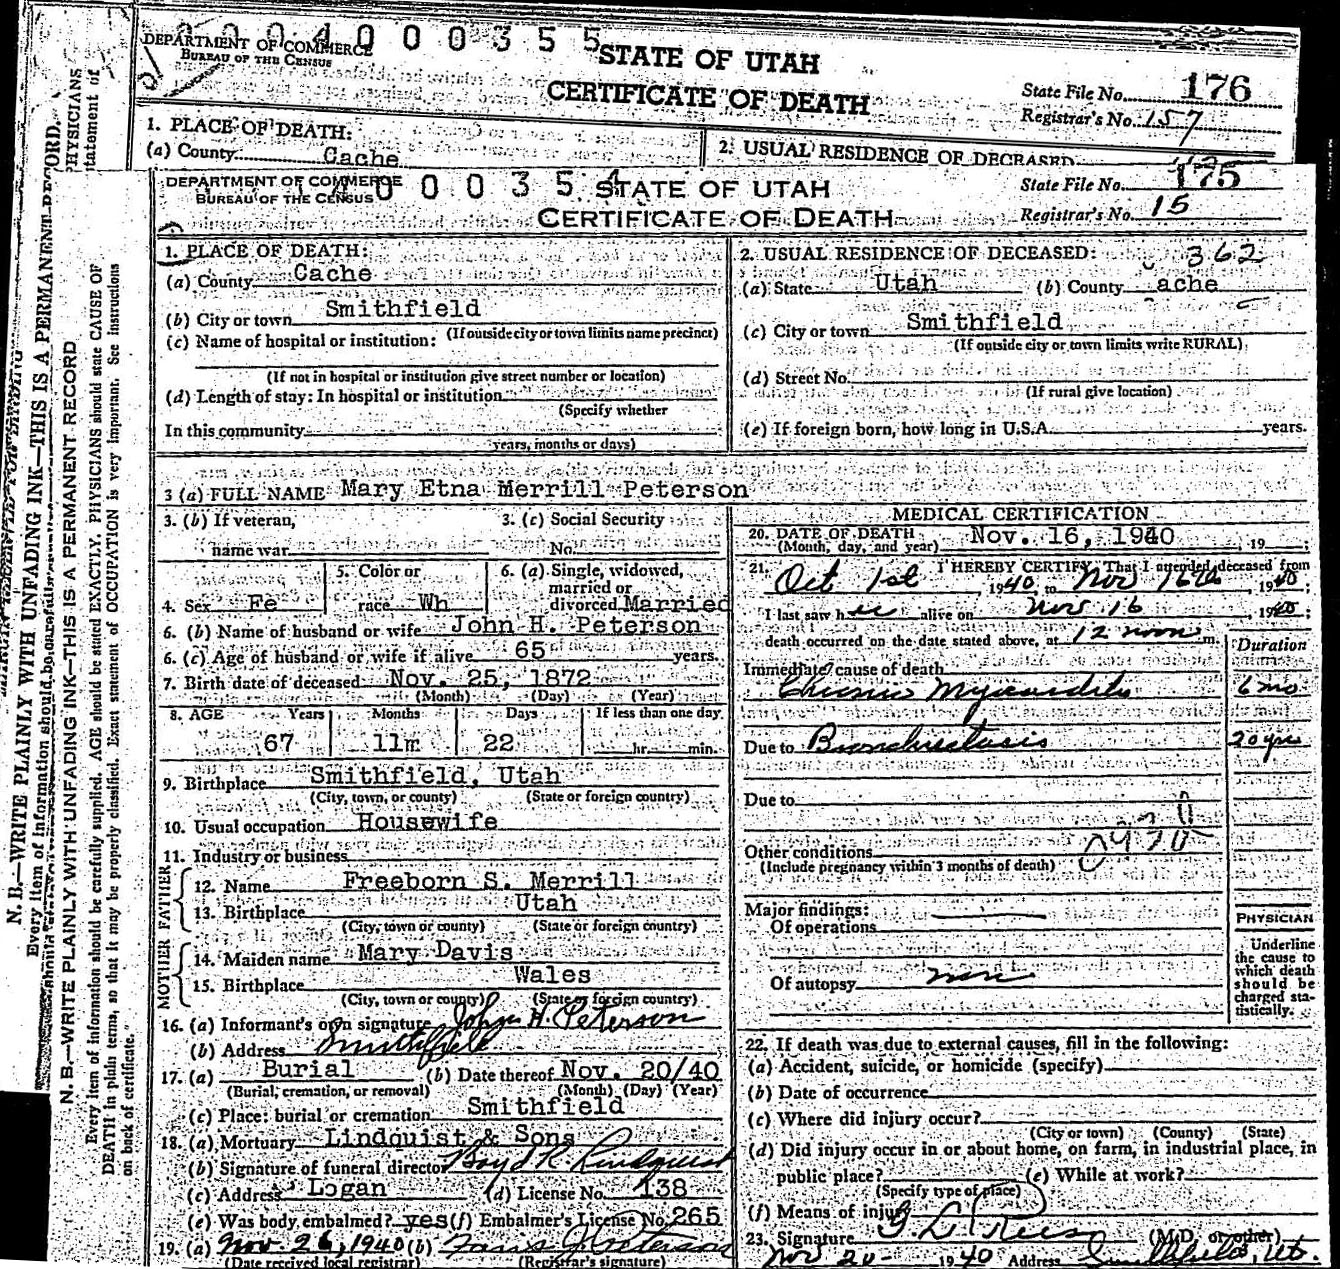 0 0 4 0 0 0 3 5 5
DEPARTMENT OF COMMERCE
BUREAU OF THE CENSUS
STATE OF UTAH
CERTIFICATE OF DEATH
State File No. 176
Registrar's No. 157
1. PLACE OF DEATH:
(a) County Cache
2. USUAL RESIDENCE OF DECEASED
DEPARTMENT OF COMMERCE
BUREAU OF THE CENSUS
0 0 0 3 5 4
STATE OF UTAH
CERTIFICATE OF DEATH
State File No. 175
Registrar's No. 15
1. PLACE OF DEATH:
(a) County Cache
(b) City or town Smithfield
(If outside city or town limits name precinct)
(c) Name of hospital or institution:
(If not in hospital or institution give street number or location)
(d) Length of stay: In hospital or institution
(Specify whether
In this community
years, months or days)
2. USUAL RESIDENCE OF DECEASED: 362
(a) State Utah (b) County ache
(c) City or town Smithfield
(If outside city or town limits write RURAL)
(d) Street No.
(If rural give location)
(e) If foreign born, how long in U.S.A. years.
3 (a) FULL NAME Mary Etna Merrill Peterson
3. (b) If veteran, name war
3. (c) Social Security No.
4. Sex Fe
5. Color or race Wh
6. (a) Single, widowed, married or divorced Married
6. (b) Name of husband or wife John H. Peterson
6. (c) Age of husband or wife if alive 65 years.
7. Birth date of deceased Nov. 25, 1872
(Month) (Day) (Year)
8. AGE Years Months Days If less than one day
67 11m 22 hr. min.
9. Birthplace Smithfield, Utah
(City, town, or county) (State or foreign country)
10. Usual occupation Housewife
11. Industry or business
FATHER
12. Name Freeborn S. Merrill
13. Birthplace Utah
(City, town or county) (State or foreign country)
MOTHER
14. Maiden name Mary Davis
15. Birthplace Wales
(City, town or county) (State or foreign country)
16. (a) Informant's own signature John H. Peterson
(b) Address Smithfield
17. (a) Burial (b) Date thereof Nov. 20/40
(Burial, cremation, or removal) (Month) (Day) (Year)
(c) Place: burial or cremation Smithfield
18. (a) Mortuary Lindquist & Sons
(b) Signature of funeral director Boyd R Lindquist
(c) Address Logan (d) License No. 138
(e) Was body embalmed? yes (f) Embalmer's License No. 265
19. (a) Nov. 26, 1940 (b) Peterson
(Date received local registrar) (Registrar's signature)
MEDICAL CERTIFICATION
20. DATE OF DEATH Nov. 16, 1940, 19
(Month, day, and year)
21. I HEREBY CERTIFY, That I attended deceased from
Oct 1st, 1940 to Nov 16th, 1940;
I last saw her alive on Nov. 16 1940;
death occurred on the date stated above, at 12 noon m.
Duration
Immediate cause of death
Chronic Myocarditis 6 mo
Due to Bronchiectasis 20 yrs
Due to
Other conditions
(Include pregnancy within 3 months of death)
Major findings:
Of operations
Of autopsy none
PHYSICIAN
Underline
the cause to
which death
should be
charged sta-
tistically.
22. If death was due to external causes, fill in the following:
(a) Accident, suicide, or homicide (specify)
(b) Date of occurrence
(c) Where did injury occur?
(City or town) (County) (State)
(d) Did injury occur in or about home, on farm, in industrial place, in
public place? (e) While at work?
(Specify type of place)
(f) Means of injury
23. Signature G L Rees (M.D. or other)
Nov 20 1940 Address Smithfield, Ut.
N. B.—WRITE PLAINLY WITH UNFADING INK—THIS IS A PERMANENT RECORD.
Every item of information should be
PHYSICIANS
statement of
N. B.—WRITE PLAINLY WITH UNFADING INK—THIS IS A PERMANENT RECORD
Every item of information should be carefully supplied. AGE should be stated EXACTLY. PHYSICIANS should state CAUSE OF
DEATH in plain terms, so that it may be properly classified. Exact statement of OCCUPATION is very important. See instructions
on back of certificate.